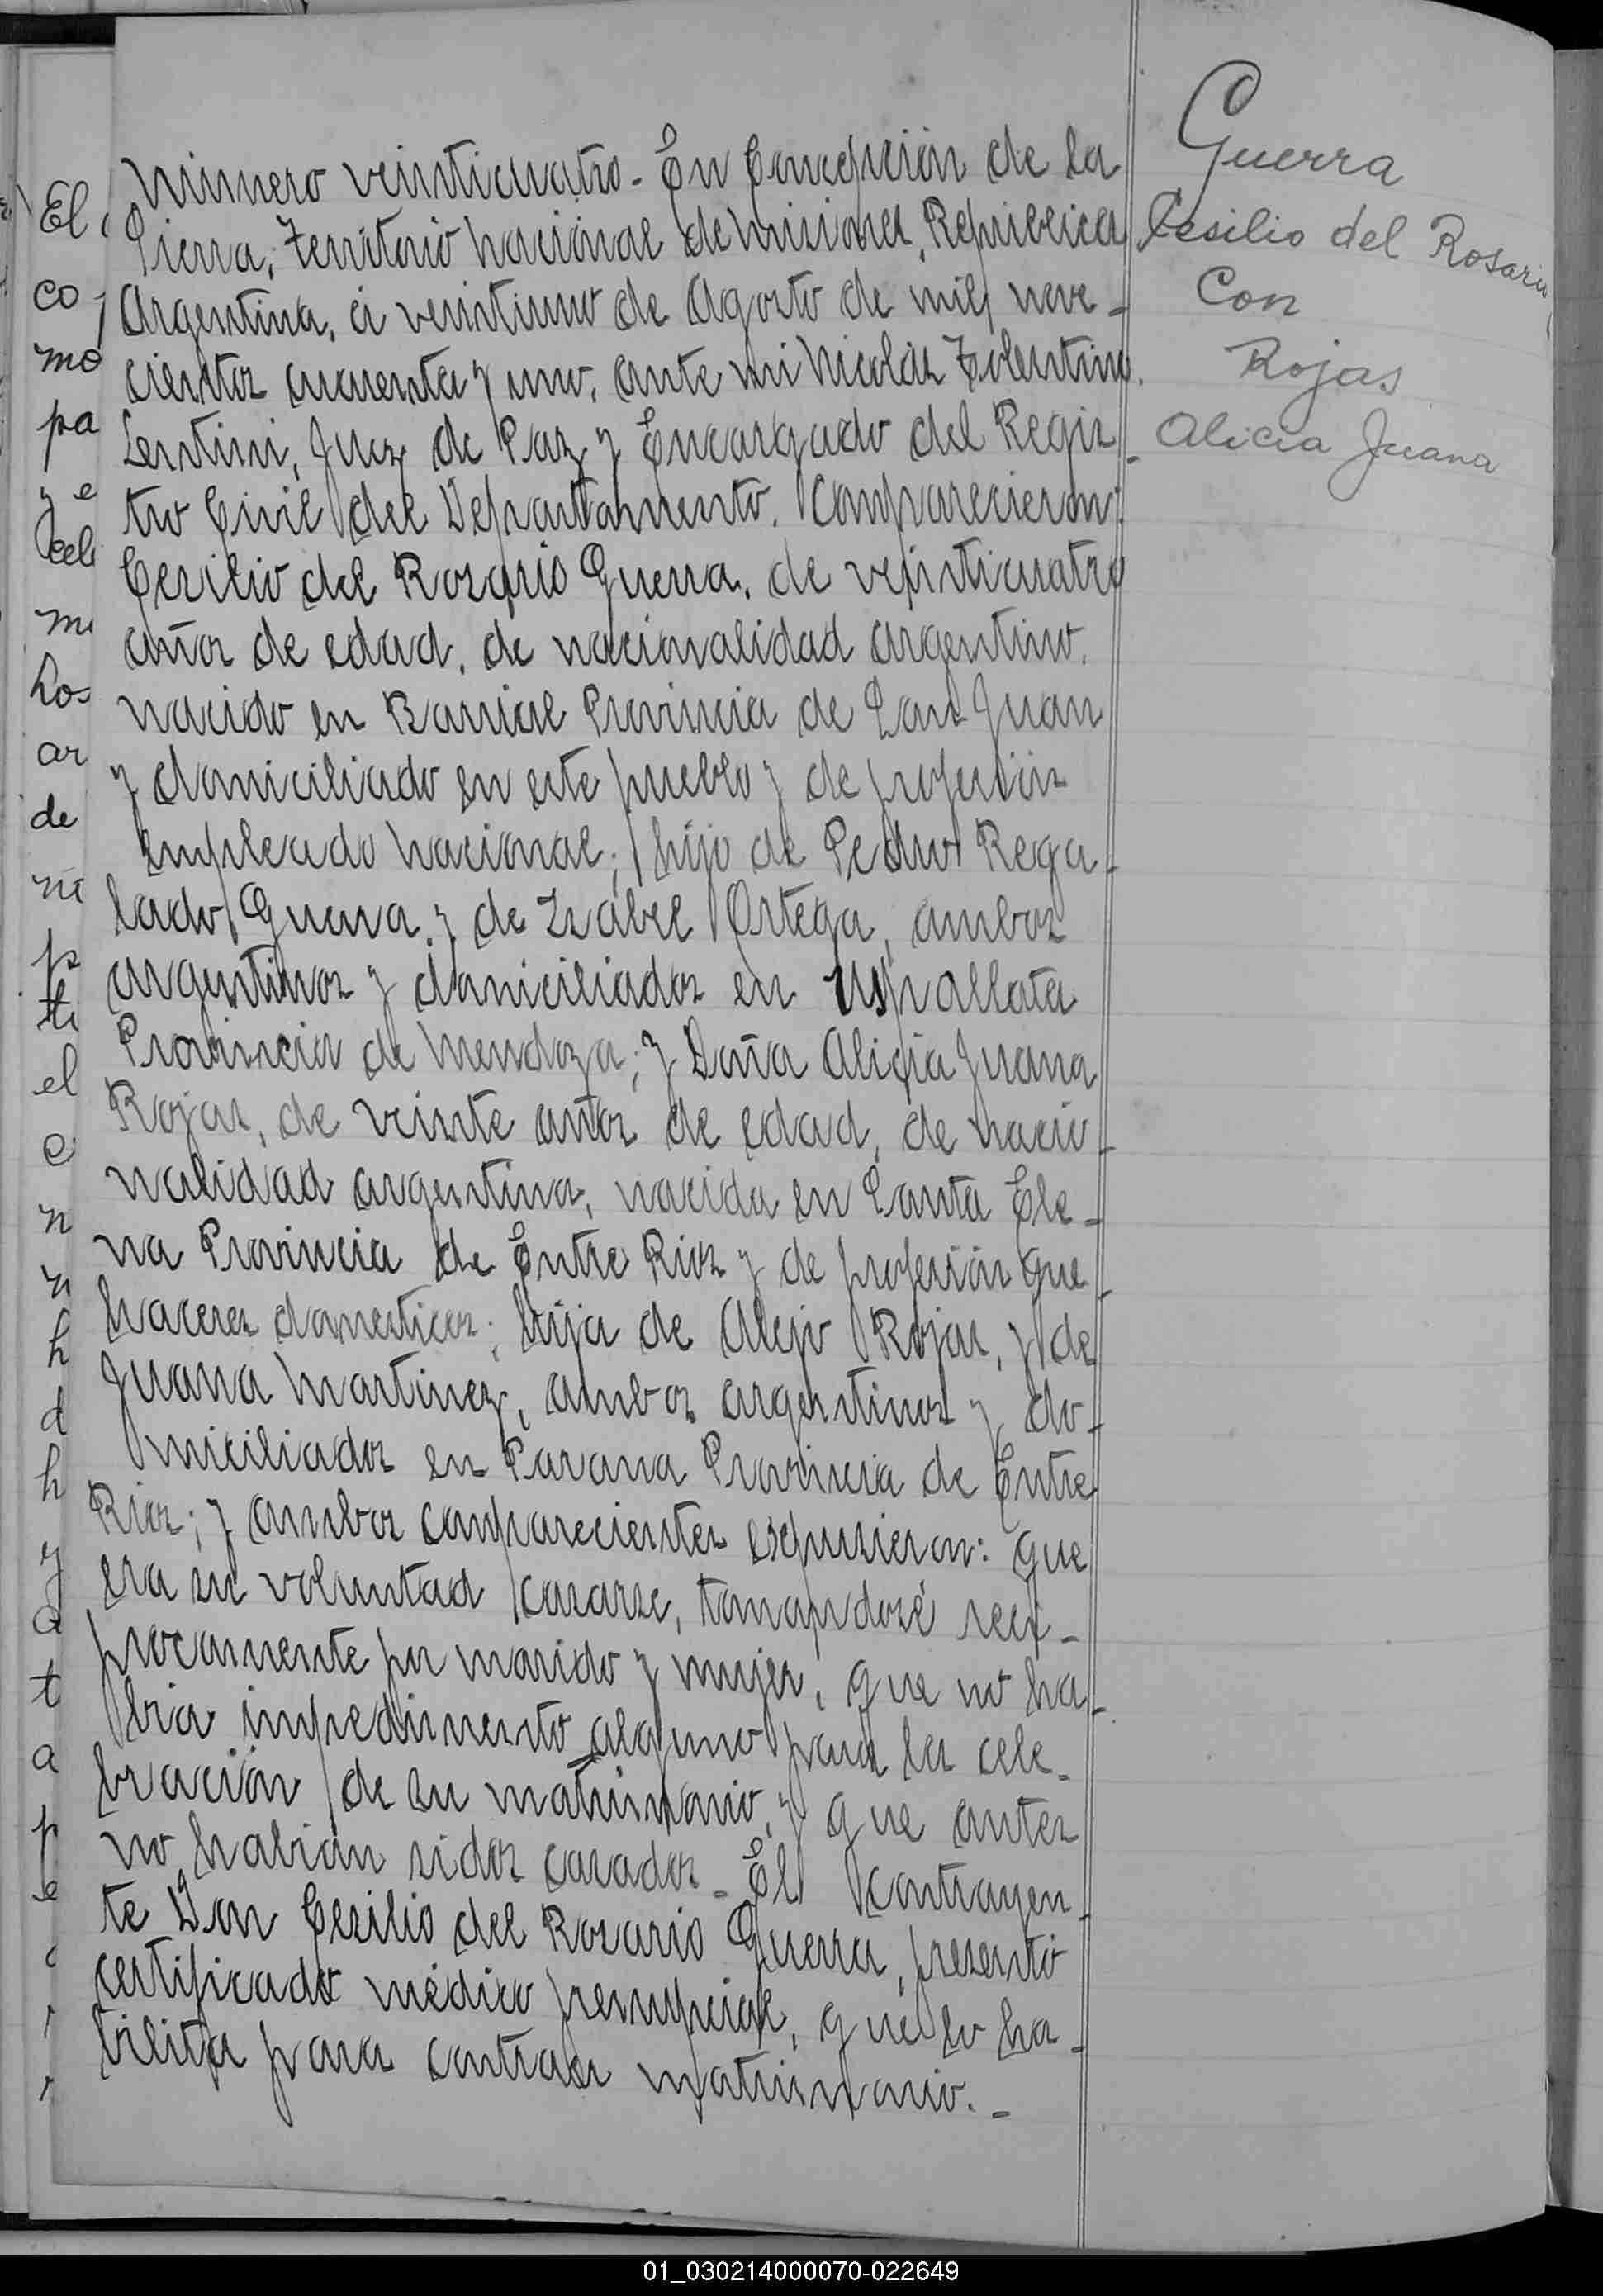 Guerra
Cesilio del Rosario
Con
Rojas
Alicia Juana
Número veinticuatro - En Concepción de la
Sierra, Territorio Nacional de Misiones, República
Argentina, á veintiuno de Agosto de mil nove-
cientos cuarenta y uno, ante mi Nicolás Tolentino
Lentini, Juez de Paz y Encargado del Regis-
tro Civil del Departamento. Comparecieron:
Cesilio del Rosario Guerra, de veinticuatro
años de edad, de nacionalidad argentino,
nacido en Barrial Provincia de San Juan
y domiciliado en este pueblo y de profesión
Empleado Nacional; hijo de Pedro Rega-
lado Guerra y de Isabel Ortega, ambos
argentinos y domiciliados en Uspallata
Provincia de Mendoza; y Doña Alicia Juana
Rojas, de veinte años de edad, de nacio-
nalidad argentina, nacida en Santa Ele-
na Provincia de Entre Rios y de profesión que-
haceres domesticos; hija de Alejo Rojas, y de
Juana Martinez, ambos argentinos y do-
miciliados en Parana Provincia de Entre
Rios; y ambos comparecientes expusieron: que
era su voluntad casarse, tomandosé recí-
procamente por marido y mujer, que no ha-
bia impedimento alguno para la cele-
bración de su matrimonio, y que antes
no habian sidos casados - El contrayen-
te Don Cesilio del Rosario Guerra, presentó
certificado médico prenupcial, que lo ha-
bilita para contraer matrimonio. -
El
co
mo
pa
y e
Celi
mi
Los
ar
de
ni
p
ti
el
e
n
n
h
d
h
y
a
t
a
p
e
01_030214000070-022649